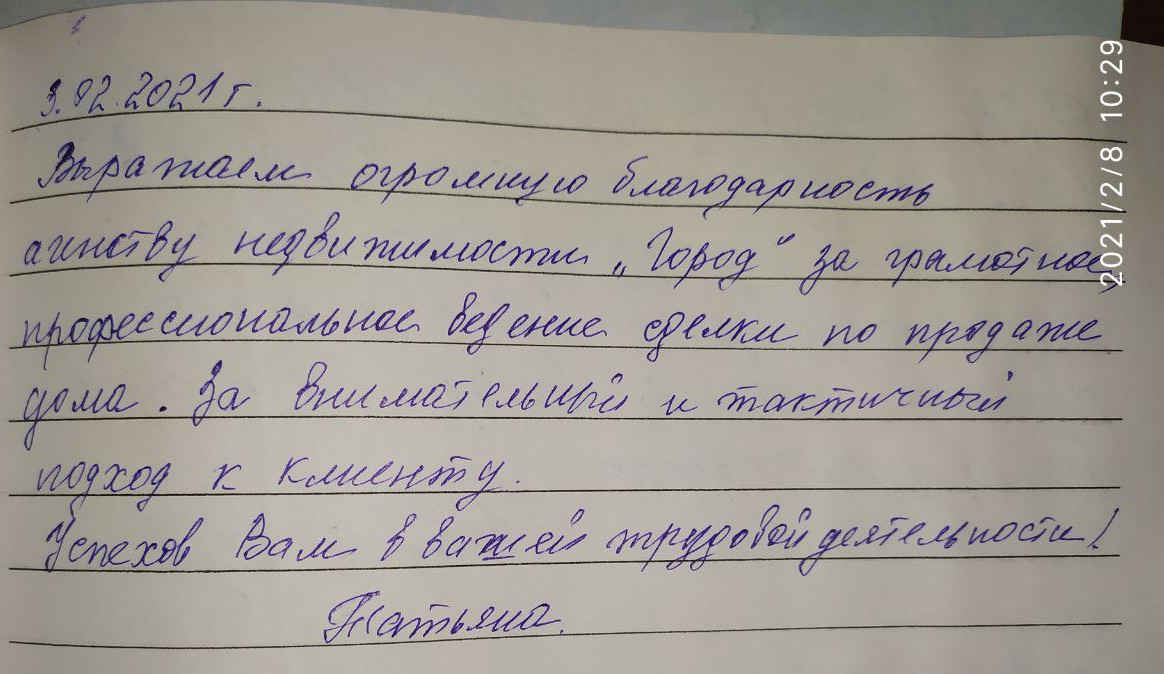 3.02.2021 г.
Выражаем огромную благодарность
агенству недвижимости „Город" за грамотное,
профессиональное ведение сделки по продаже
дома. За внимательный и тактичный
подход к клиенту.
Успехов Вам в вашей трудовой деятельности!
Татьяна.
2021/2/8 10:29